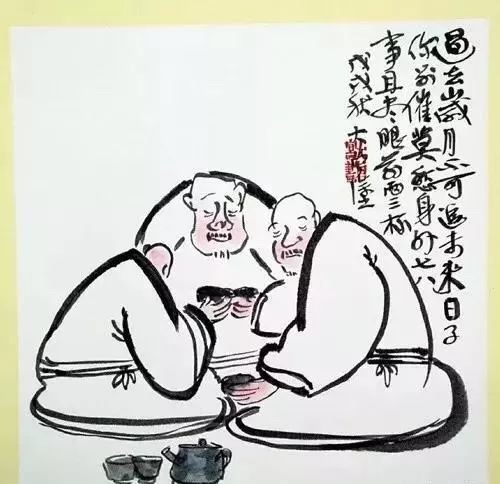 過去歲月不可追未来日子
你别催莫愁身外七八
事且尽眼前两三杯
戊戌秋 大